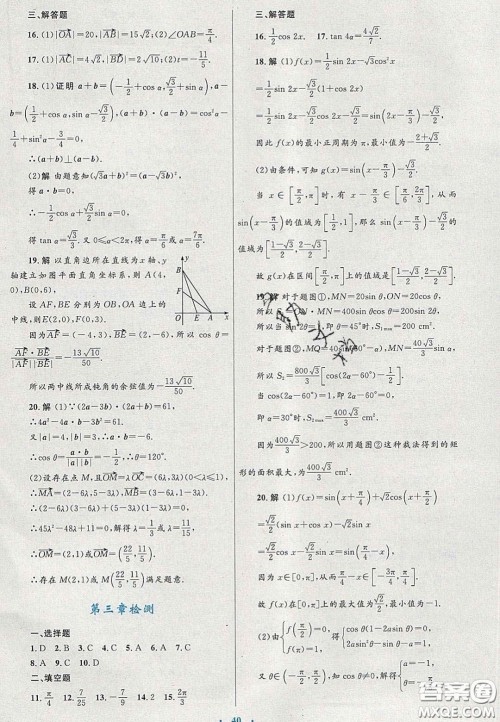 三、解答题
16. (1)|OA|=4√2,|AB|=15√2;(2)∠OAB=π/4.
17. (1)|AC|=4√5,|BD|=2√10;(2)t=-11/5.
18. (1)证明 a+b=(-1/2+cos α, √3/2+
sin α),a-b=(1/2+cos α, sin α-√3/2),(a+b)·(a-b)=cos²α-
1/4+sin²α-3/4=0,
∴(a+b)⊥(a-b).
(2)解 由题意知(√3a+b)·(a-√3b)=0,
得a·b=0,
∴-1/2cos α+√3/2sin α=0,
得tan α=√3/3.又0≤α<2π,得α=π/6或7π/6.
19. 解 以直角边所在直线为x轴,y
轴建立如图平面直角坐标系,则A(4,
0),B(0,6).
设AF,BE分别为OB,OA边上的
中线,则E(2,0),F(0,3).
y
B
F
O
E
A
x
因为AF=(-4,3),BE=(2,-6),所以cos θ=
AF·BE/|AF||BE|=-13√10/50.
所以两中线所成钝角的余弦值为-13√10/50.
20. 解 (1)∵(2a-3b)·(2a+b)=61,
∴4a²-4a·b-3b²=61.又|a|=4,
|b|=3,∴a·b=-6.
∴cos θ=a·b/|a||b|=-1/2,∴θ=120°.
(2)设存在点M,且OM=λOC=(6λ,3λ)(0<λ≤1),
∴MA=(2-6λ,5-3λ),MB=(3-6λ,1-3λ),
∴(2-6λ)(3-6λ)+(5-3λ)(1-3λ)=0,
∴45λ²-48λ+11=0,解得λ=1/3或λ=11/15,
∴OM=(2,1)或OM=(22/5,11/5).
∴存在M(2,1)或M(22/5,11/5)满足题意.
第三章检测
一、选择题
1. D 2. B 3. C 4. D 5. C 6. D 7. C
8. A 9. C 10. D
二、填空题
11. 4/5 12. -π/4 13. -7/9 14. 2 15. 2π/3
三、解答题
16. 1/2cos 2x. 17. tan 4α=4√2/7.
18. 解 (1)f(x)=1/2sin 2x-√3cos²x
=1/2sin 2x-√3/2(1+cos 2x)
=1/2sin 2x-√3/2cos 2x-√3/2=sin(2x-π/3)-√3/2,
因此f(x)的最小正周期为π,最小值为-(2+√3)/2.
(2)由条件,可知g(x)=sin(x-π/3)-√3/2.
当x∈[π/2,π]时,有x-π/3∈[π/6,2π/3],从而
sin(x-π/3)的值域为[1/2,1],那么sin(x-π/3)-√3/2的
值域为[(1-√3)/2,(2-√3)/2].
故g(x)在区间[π/2,π]上的值域是[(1-√3)/2,(2-√3)/2].
19. 解 对于题图①,MN=20sin θ,ON=20cos θ,
所以当sin 2θ=1,即θ=45°时,S₁max=200 cm².
对于题图②,MQ=40sin(60°-α),MN=40√3/3sin α,
所以S₂=800√3/3·1/2[cos(2α-60°)-1/2].
当cos(2α-60°)=1,即2α-60°=0,
即α=30°时,S₂max=400√3/3 cm².
因为400√3/3>200,所以用题图②这种裁法得到的矩
形的面积最大,为400√3/3 cm².
20. 解 (1)f(x)=sin(x+π/4)+√2cos(x+π/2)
=√2/2(sin x+cos x)-√2sin x
=√2/2cos x-√2/2sin x=sin(π/4-x).
因为x∈[0,π],从而π/4-x∈[-3π/4,π/4],
故f(x)在[0,π]上的最大值为√2/2,最小值为-1.
(2)由{f(π/2)=0, f(π)=1 得{cos θ(1-2asin θ)=0, 2asin²θ-sin θ-a=1.
又θ∈(-π/2,π/2),知cos θ≠0,解得{a=-1, θ=-π/6.
40
答案圈
MXQE.COM